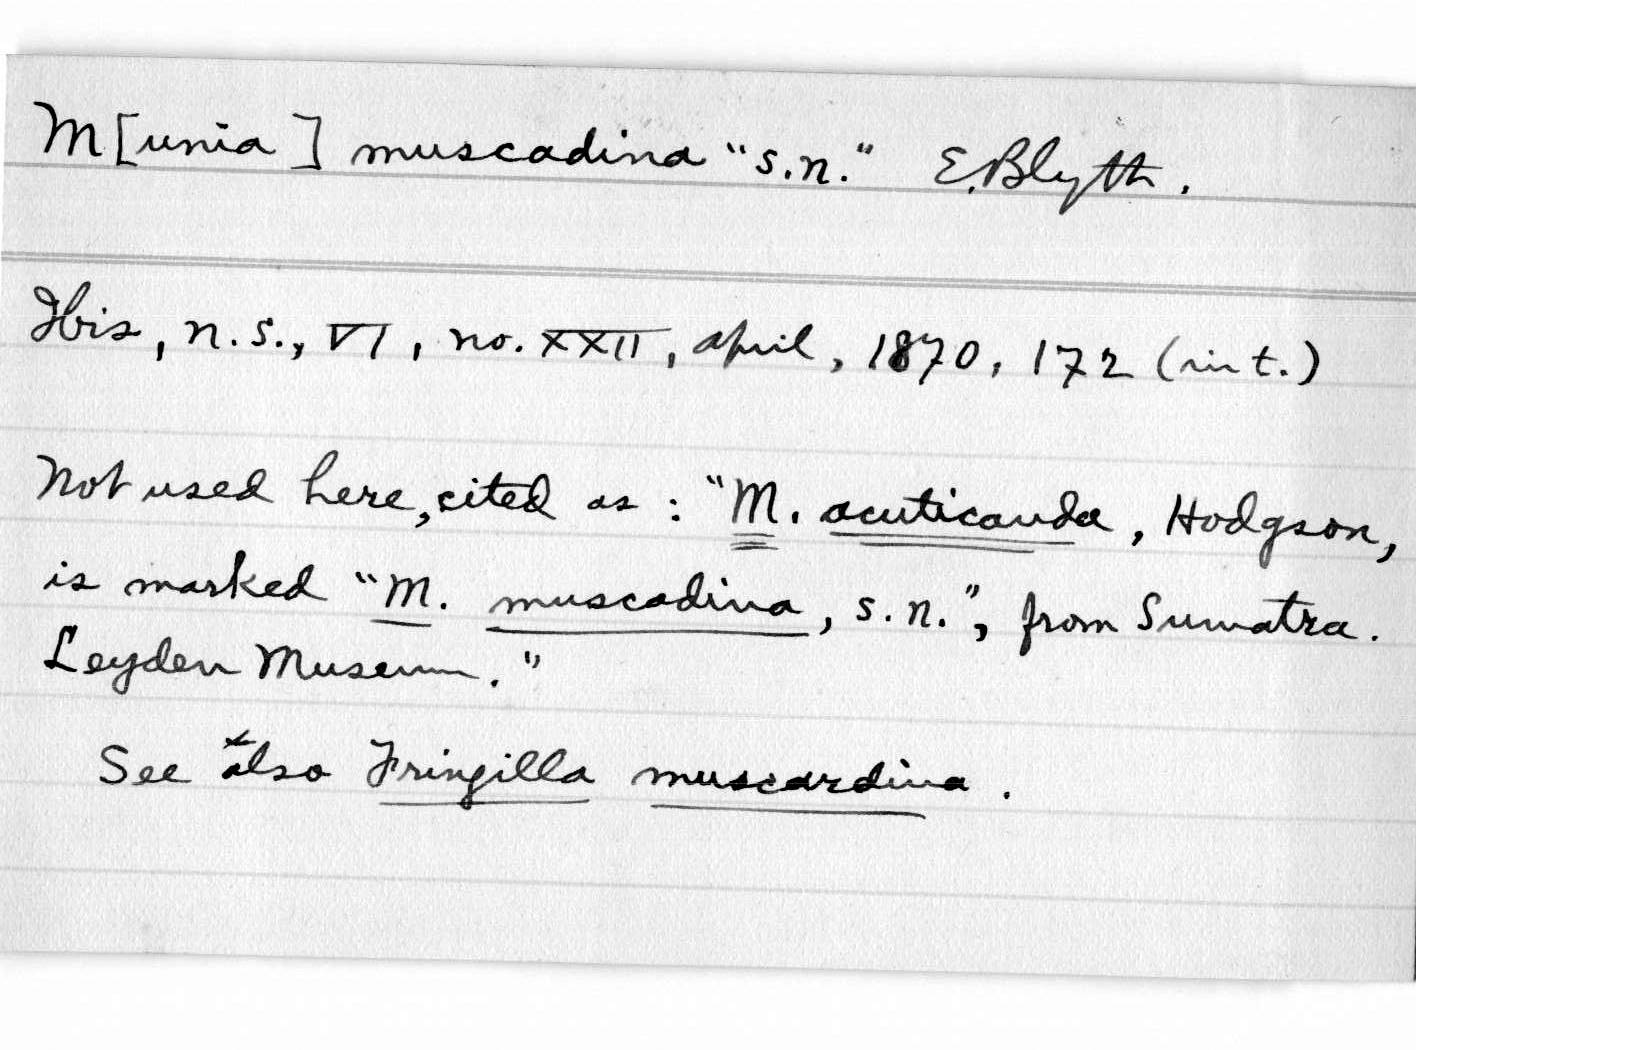 M[unia] muscadina "s.n." E. Blyth.
Ibis, n.s., VI, no. XXII, April, 1870, 172 (in t.)
Not used here, cited as: "M. acuticauda, Hodgson,
is marked "M. muscadina, s.n.", from Sumatra.
Leyden Museum."
See also Fringilla muscardina.